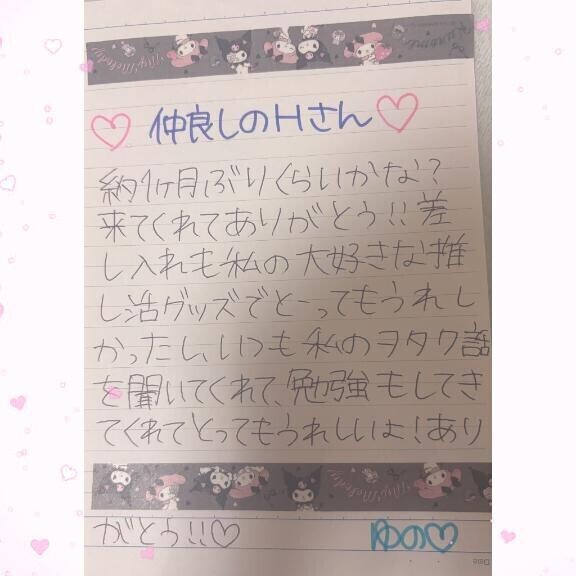 My Melody
Kuromi
♡ 仲良しのHさん ♡
約1ヶ月ぶりくらいかな?
来てくれてありがとう!!差
し入れも私の大好きな推
し活グッズでとーってもうれし
かったし、いつも私のヲタク話
を聞いてくれて、勉強もしてき
てくれてとってもうれしいよ!あり
My Melody
がとう!!♡
ゆの♡
Date